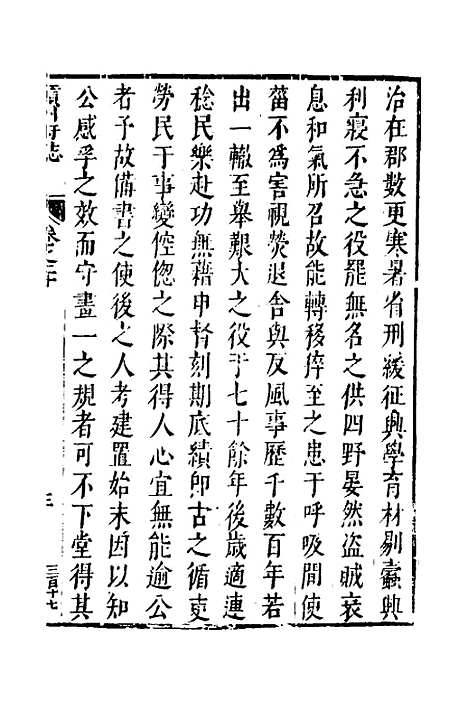 治在郡數更寒暑省刑緩征興學育材剔蠹興
利寢不急之役罷無名之供四野晏然盗賊衰
息和氣所召故能轉移猝至之患于呼吸間使
菑不為害視熒退舍與反風事歷千數百年若
出一轍至舉艱大之役于七十餘年後歲適連
稔民樂赴功無藉申督刻期底績卽古之循吏
勞民于事變倥偬之際其得人心宜無能逾公
者予故備書之使後之人考建置始末因以知
公感孚之效而守畫一之規者可不下堂得其
州府志
卷之
三
三百十七